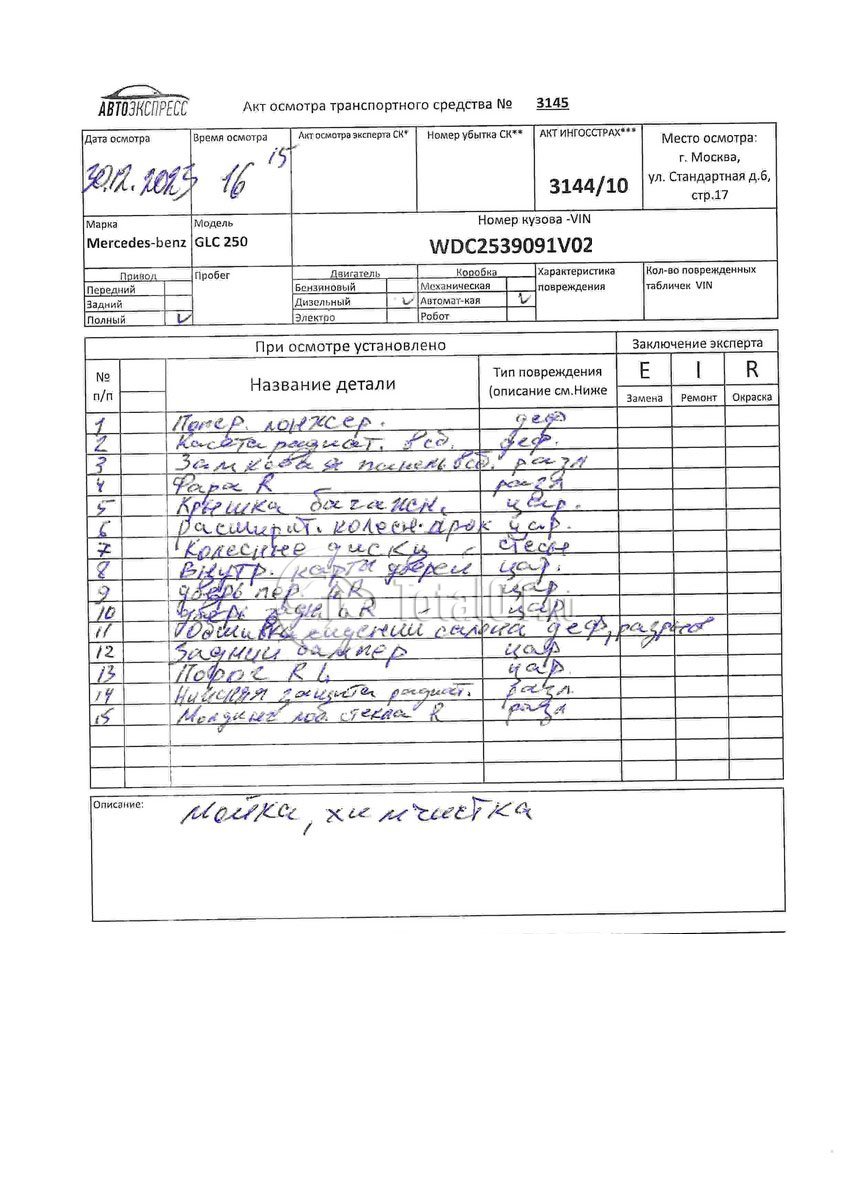 АВТОЭКСПРЕСС
Акт осмотра транспортного средства № 3145
Дата осмотра
30.12.2023
Время осмотра
16 15
Акт осмотра эксперта СК*
Номер убытка СК**
АКТ ИНГОССТРАХ***
3144/10
Место осмотра:
г. Москва,
ул. Стандартная д.6,
стр.17
Марка
Mercedes-benz
Модель
GLC 250
Номер кузова -VIN
WDC2539091V02
Привод
Передний
Задний
Полный V
Пробег
Двигатель
Бензиновый
Дизельный V
Электро
Коробка
Механическая
Автомат-кая V
Робот
Характеристика
повреждения
Кол-во поврежденных
табличек VIN
При осмотре установлено
Заключение эксперта
№
п/п
Название детали
Тип повреждения
(описание см.Ниже
E I R
Замена Ремонт Окраска
1 Попер. лонжер. деф
2 Касета радиат. в сб. деф.
3 Замковая панель в сб. разл
4 Фара R разл
5 Крышка багажн. цар.
6 Расширит. колесн. арок цар.
7 Колесные диски
8 Внутр. карты дверей цар.
9 дверь пер. R цар
10 дверь R цар
11 Обшивка сидений салона деф, разрыв
12 Задний бампер цар
13 Порог R L цар.
14 Нижняя защита радиат. разл.
15 Молдинг лоб. стекла R разл
TotalCar.ru
Описание:
мойка, химчистка